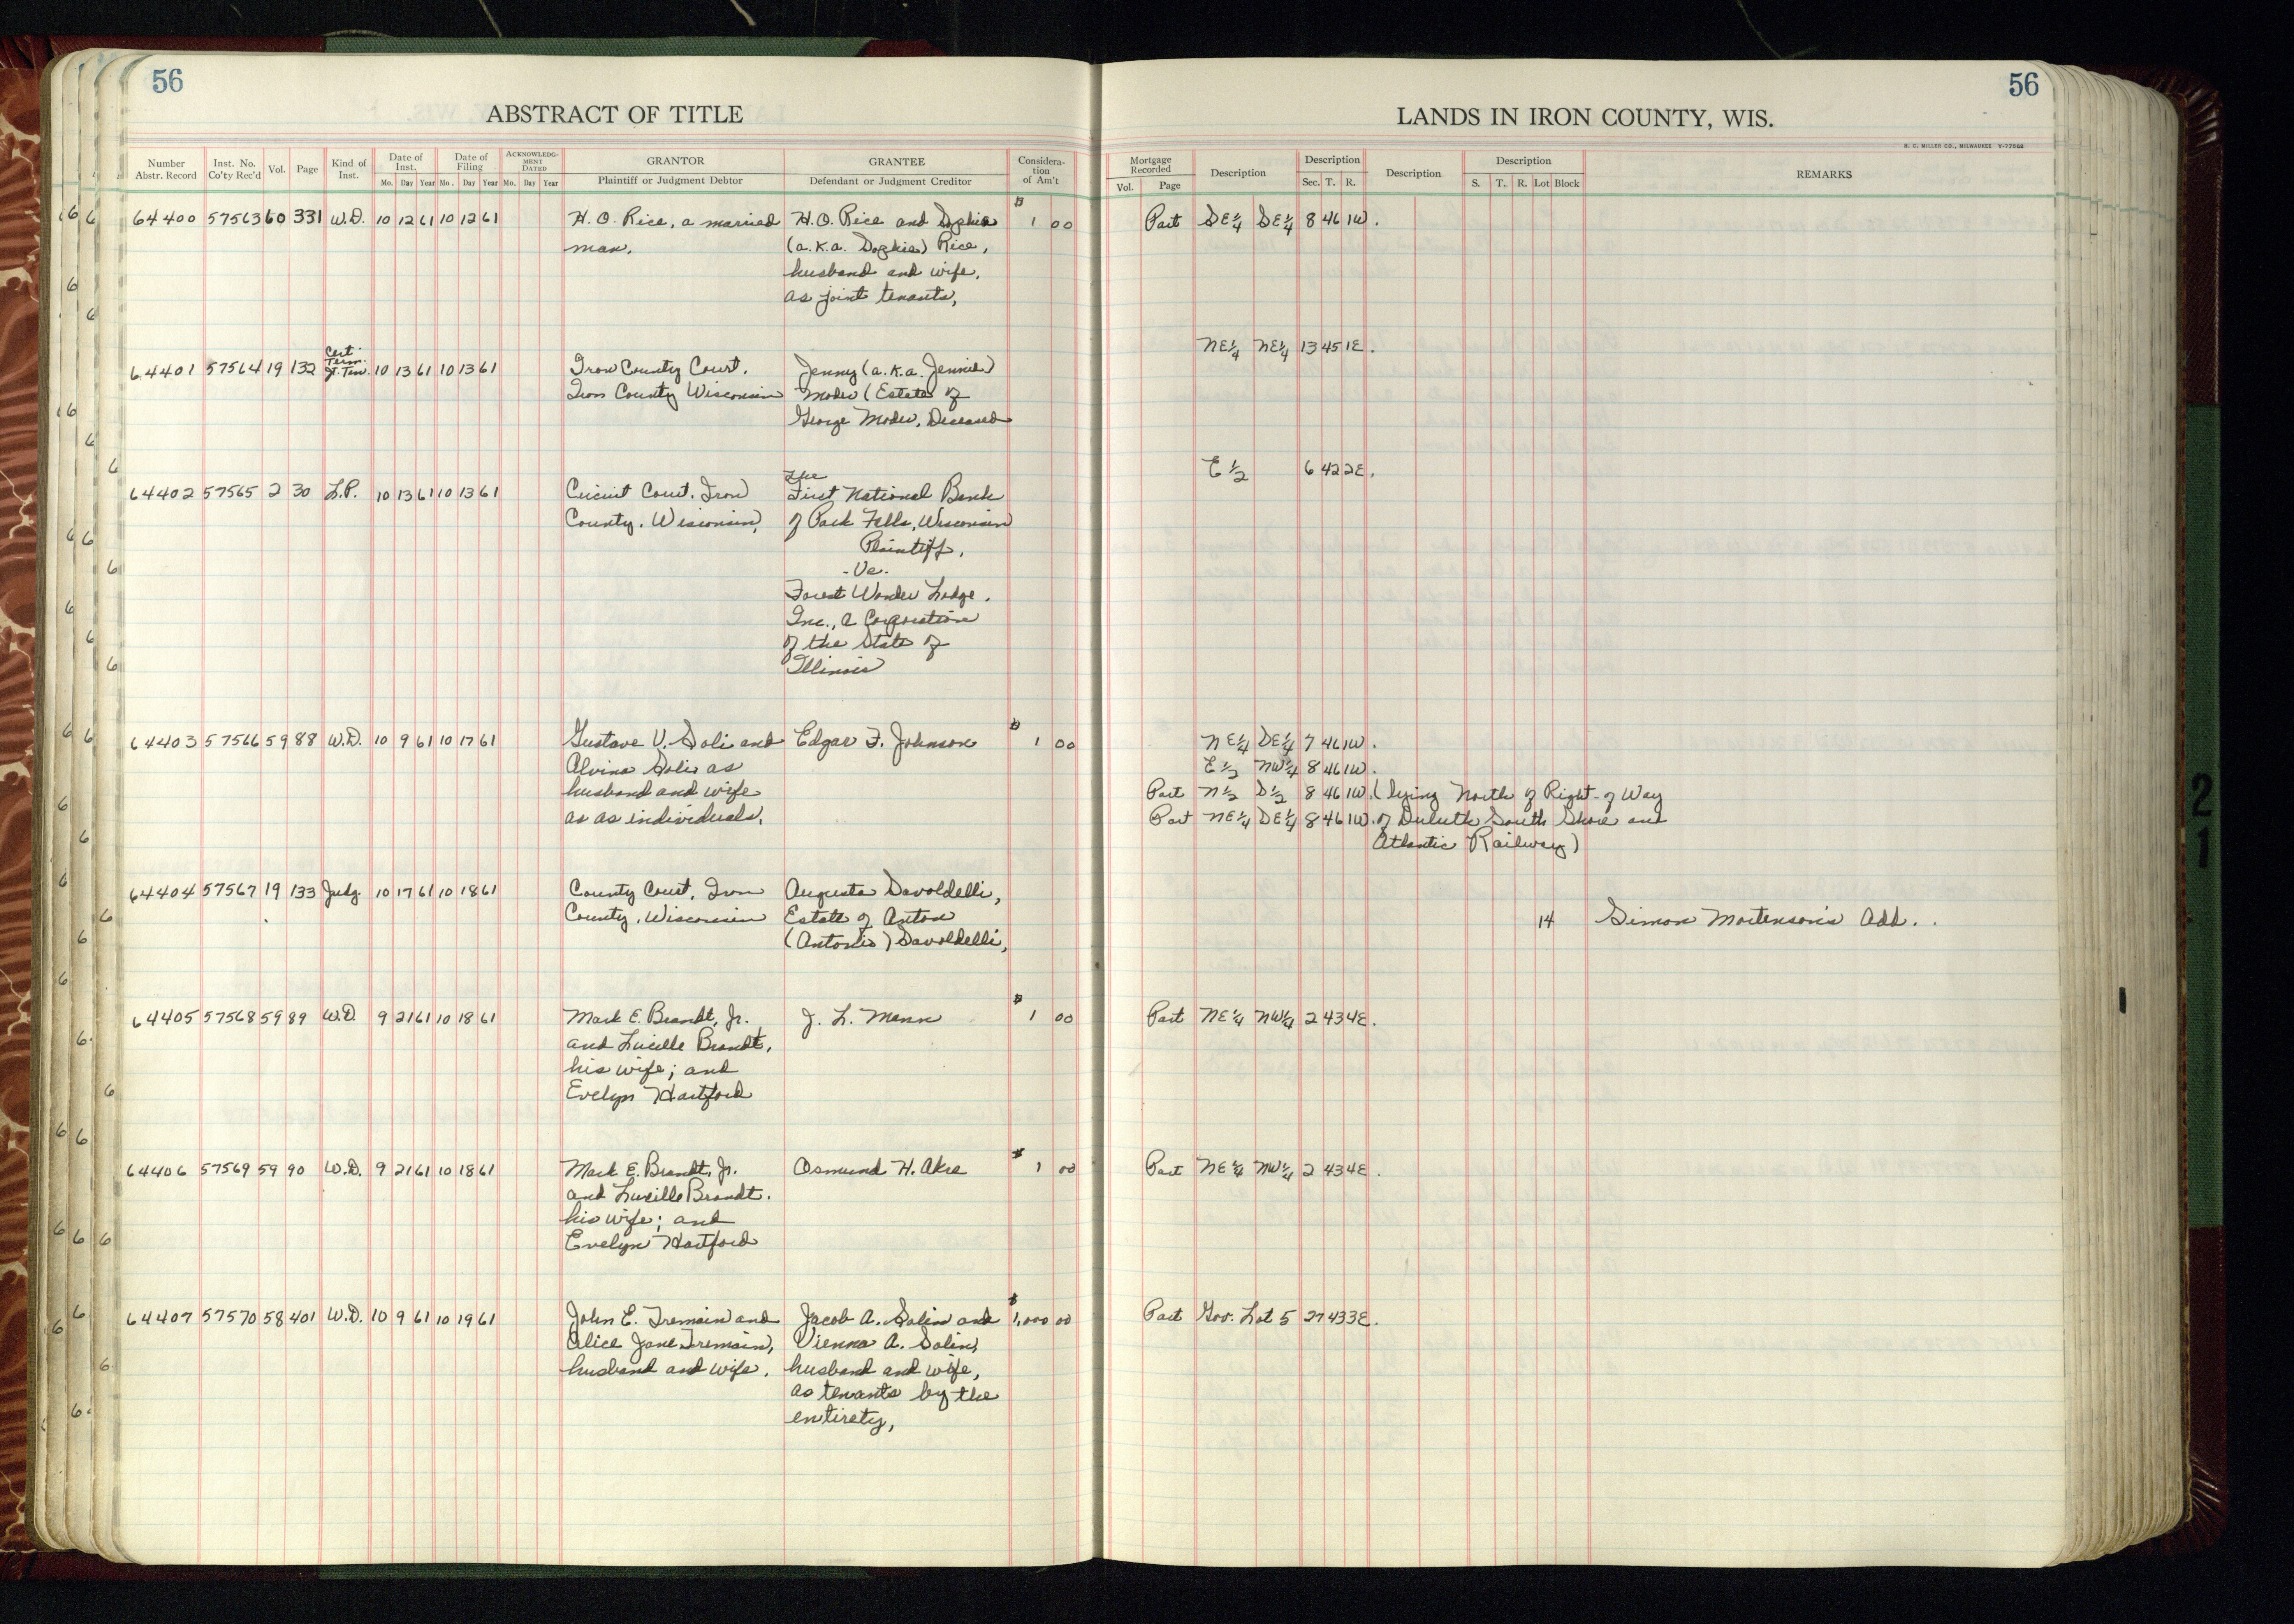 56
ABSTRACT OF TITLE
Number Abstr. Record Inst. No. Co'ty Rec'd Vol. Page Kind of Inst. Date of Inst. Mo. Day Year Date of Filing Mo. Day Year ACKNOWLEDGMENT DATED Mo. Day Year GRANTOR Plaintiff or Judgment Debtor GRANTEE Defendant or Judgment Creditor Consideration of Am't
64400 57563 60 331 W.D. 10 12 61 10 12 61 H. O. Rice, a married H. O. Rice and Sophia $ 1 00
man, (a.k.a. Sophie) Rice,
husband and wife,
as joint tenants,
Cert.
Term.
64401 57564 19 132 Jt. Ten. 10 13 61 10 13 61 Iron County Court, Jenny (a.k.a. Jennie)
Iron County Wisconsin Moder (Estate of
George Moder, Deceased
The
64402 57565 2 30 L.P. 10 13 61 10 13 61 Circuit Court, Iron First National Bank
County, Wisconsin, of Park Falls, Wisconsin
Plaintiff,
-Vs.
Forest Wonder Lodge,
Inc., a Corporation
of the State of
Illinois
64403 57566 59 88 W.D. 10 9 61 10 17 61 Gustave V. Soli and Edgar F. Johnson $ 1 00
Alvina Soli as
husband and wife
as as individuals,
64404 57567 19 133 Judg. 10 17 61 10 18 61 County Court, Iron Augusta Savoldelli,
County, Wisconsin Estate of Anton
(Antonio) Savoldelli,
64405 57568 59 89 W.D. 9 21 61 10 18 61 Mark E. Brandt, Jr. J. L. Mann $ 1 00
and Lucille Brandt,
his wife; and
Evelyn Hartford
64406 57569 59 90 W.D. 9 21 61 10 18 61 Mark E. Brandt, Jr. Osmund H. Akre $ 1 00
and Lucille Brandt,
his wife; and
Evelyn Hartford
64407 57570 58 401 W.D. 10 9 61 10 19 61 John E. Tremain and Jacob A. Salin and $ 1,000 00
Alice Jane Tremain, Vienna A. Salin,
husband and wife. husband and wife,
as tenants by the
entirety,
56
LANDS IN IRON COUNTY, WIS.
H. C. MILLER CO., MILWAUKEE
Mortgage Recorded Vol. Page Description Description Sec. T. R. Description Description S. T. R. Lot Block REMARKS
Part SE¼ SE¼ 8 46 1W.
NE¼ NE¼ 13 45 1E.
E½ 6 42 2E.
NE¼ SE¼ 7 46 1W.
E½ NW¼ 8 46 1W.
Part N½ S½ 8 46 1W. (lying North of Right-of Way
Part NE¼ SE¼ 8 46 1W. of Duluth South Shore and
Atlantic Railway)
14 Simon Mortenson's Add.
Part NE¼ NW¼ 2 43 4E.
Part NE¼ NW¼ 2 43 4E.
Part Gov. Lot 5 27 43 3E.
21